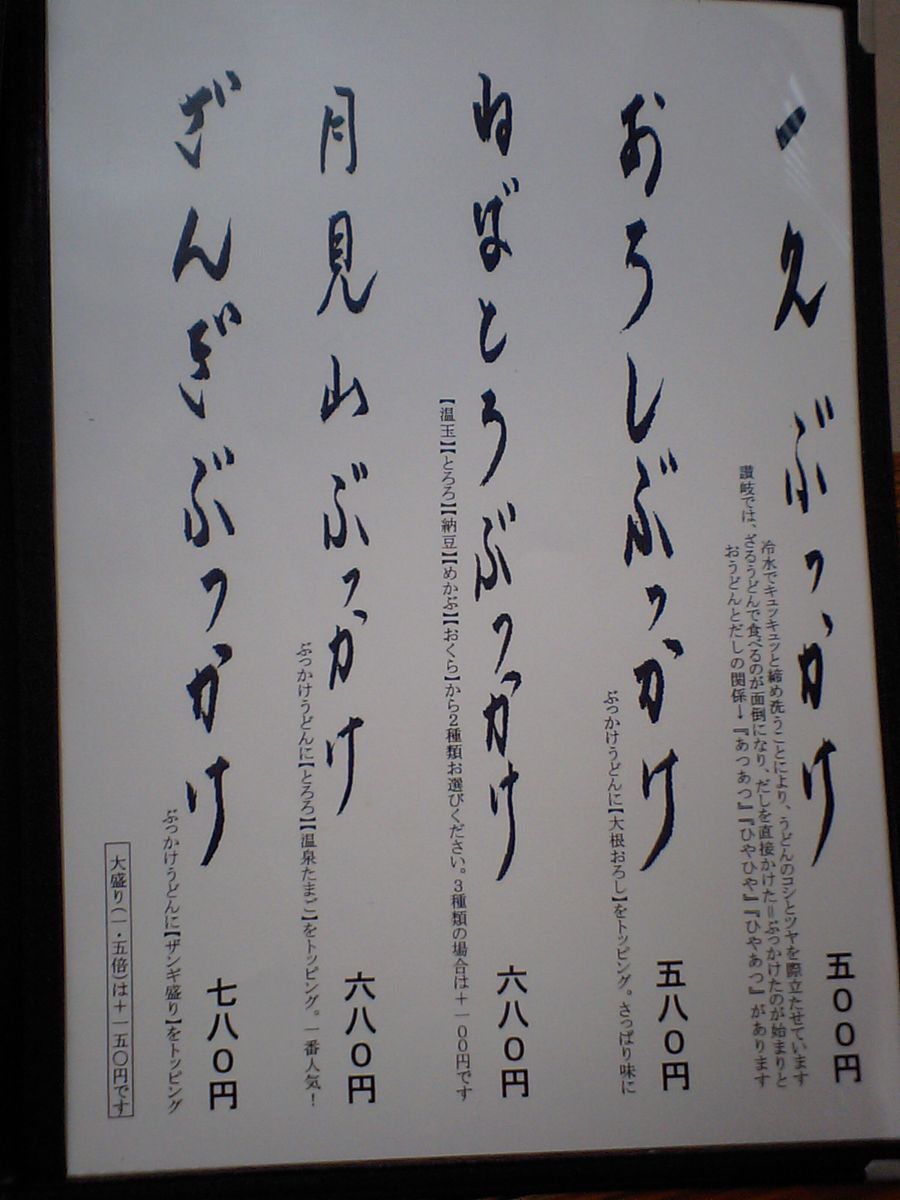 一久 ぶっかけ 五〇〇円
冷水でキュッキュッと締め洗うことにより、うどんのコシとツヤを際立たせています
讃岐では、ざるうどんで食べるのが面倒になり、だしを直接かけた=ぶっかけたのが始まりと
おうどんとだしの関係→『あつあつ』『ひやひや』『ひやあつ』があります
おろしぶっかけ 五八〇円
ぶっかけうどんに【大根おろし】をトッピング。さっぱり味に
ねばとろぶっかけ 六八〇円
【温玉】【とろろ】【納豆】【めかぶ】【おくら】から2種類お選びください。3種類の場合は+一〇〇円です
月見山ぶっかけ 六八〇円
ぶっかけうどんに【とろろ】【温泉たまご】をトッピング。一番人気!
ざんぎぶっかけ 七八〇円
ぶっかけうどんに【ザンギ盛り】をトッピング
大盛り(一・五倍)は+一五〇円です